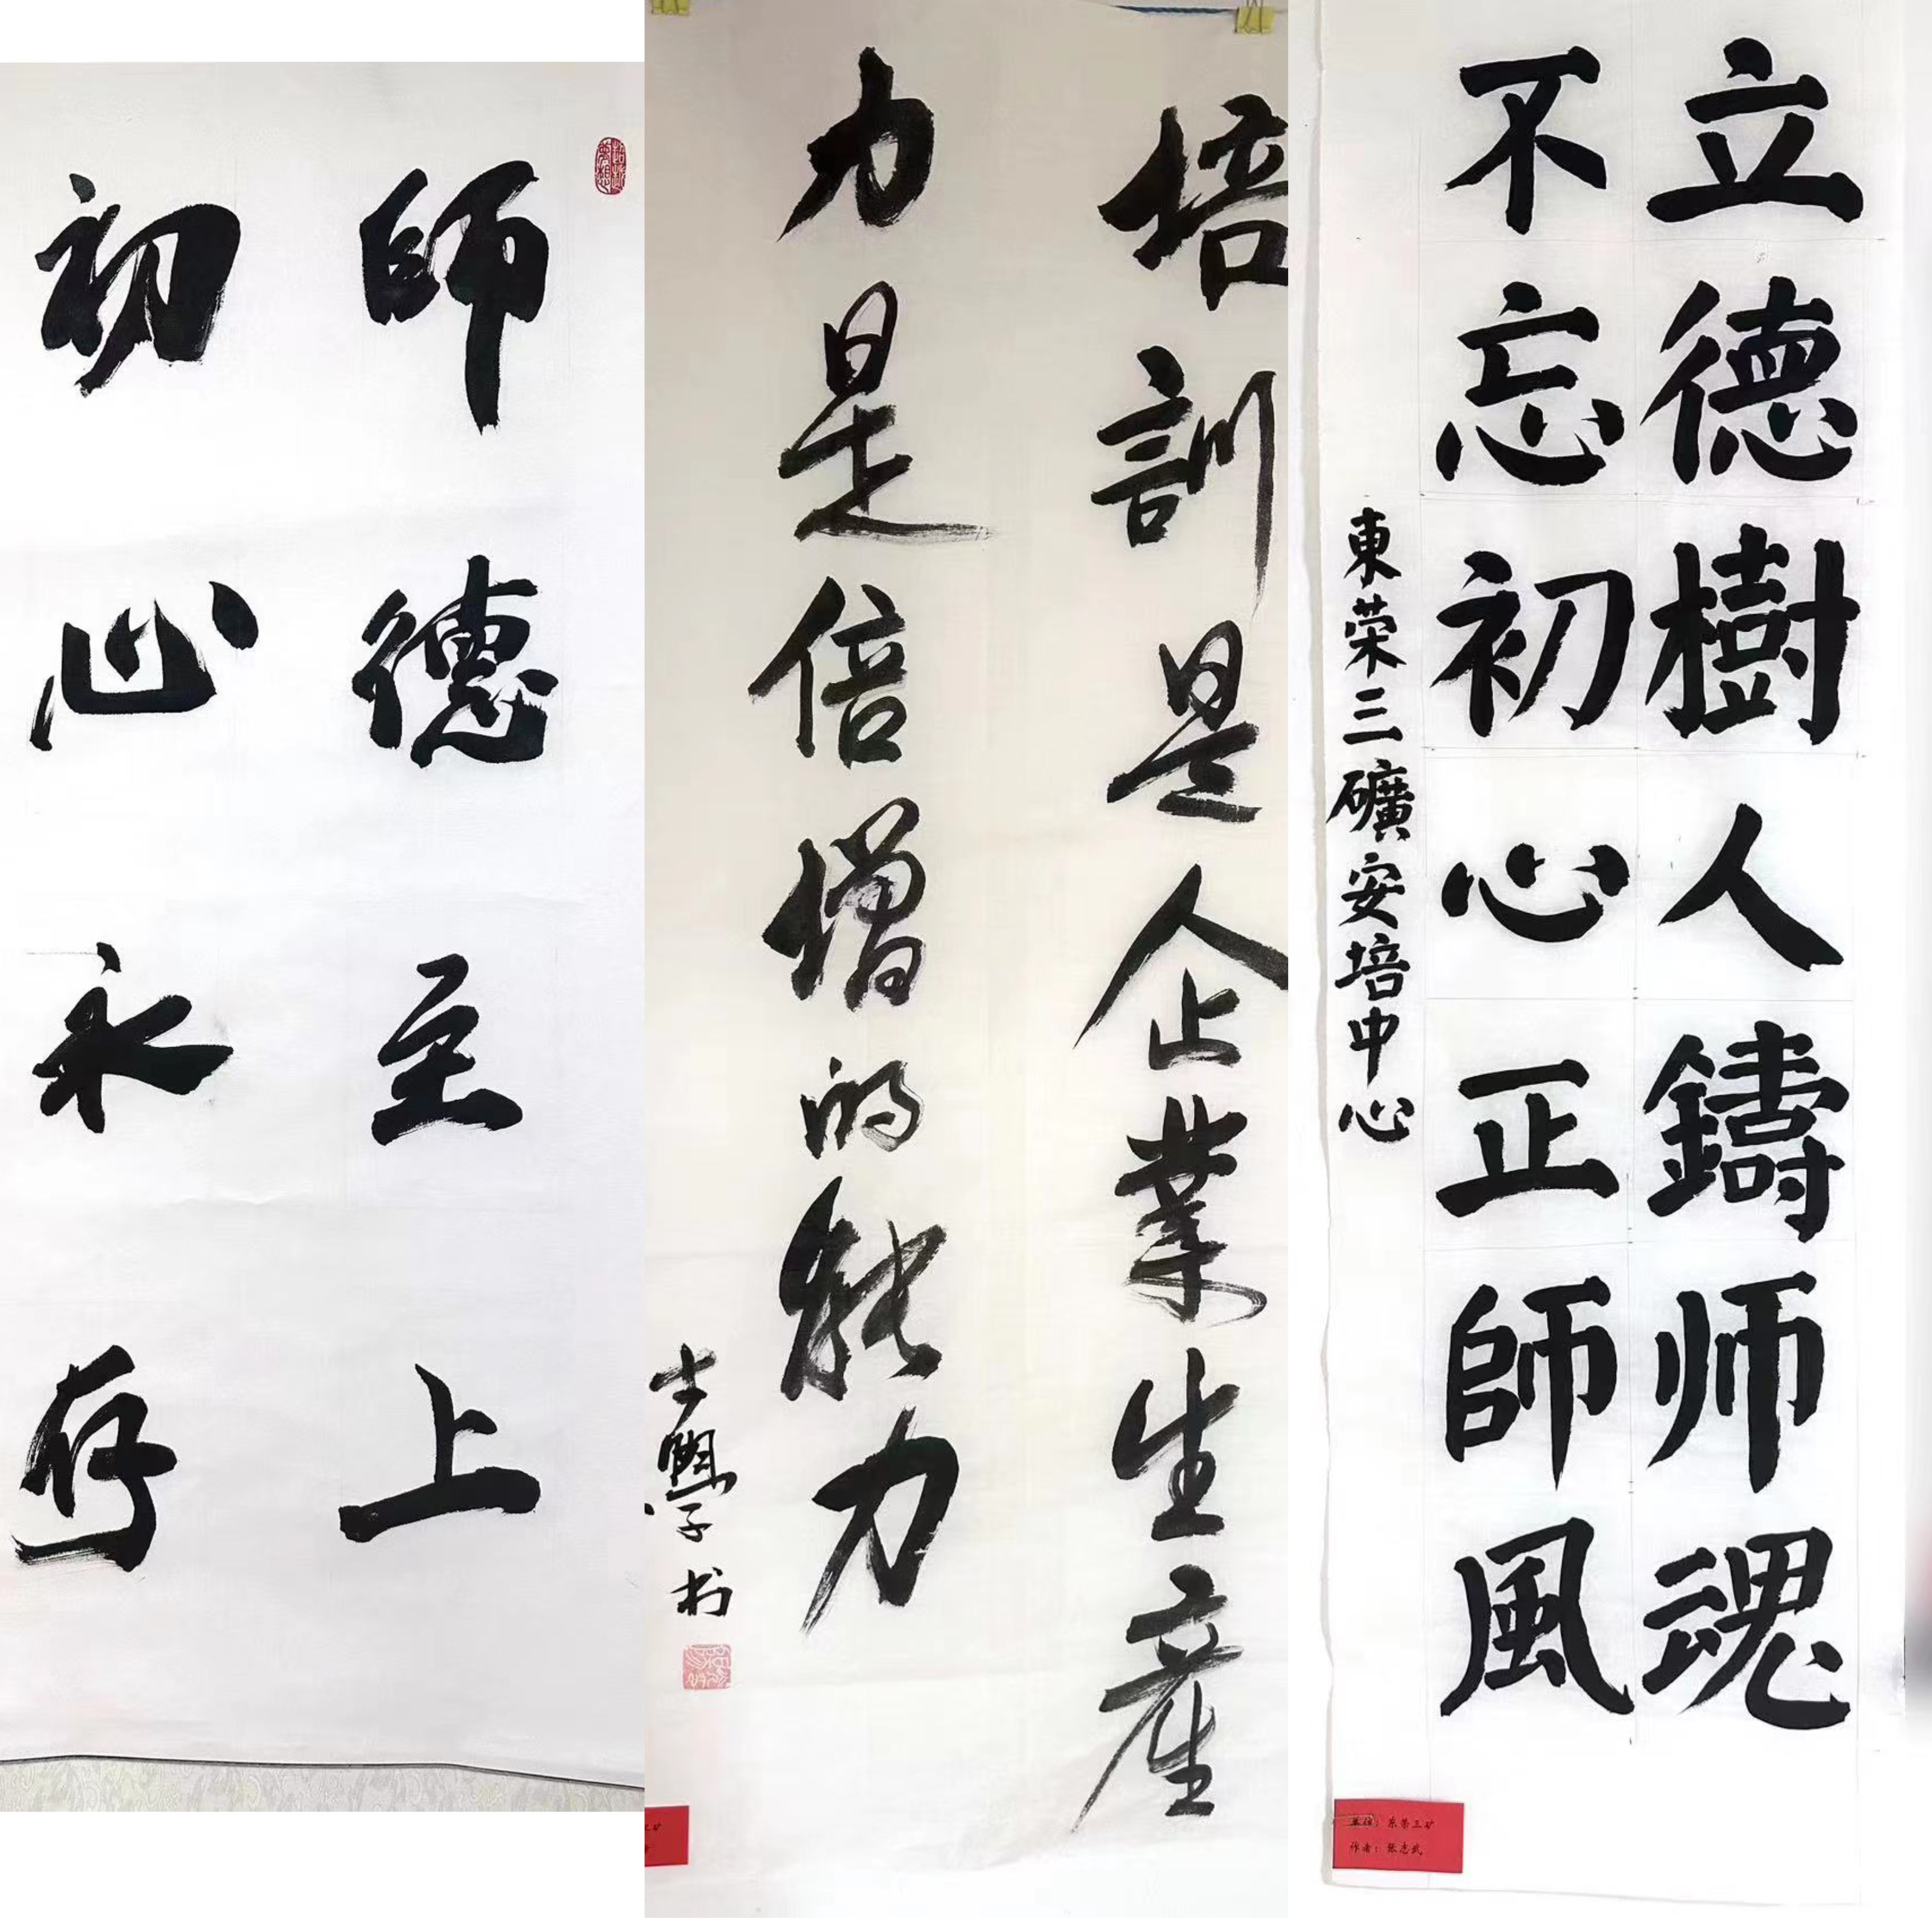 師德至上
初心永存
培訓是企業生産
力是倍增的能力
学书
立德樹人鑄师魂
不忘初心正師風
東荣三礦安培中心
单位：东荣三矿
作者：张志武